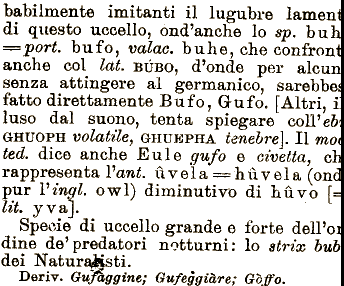 babilmente imitanti il lugubre lament
di questo uccello, ond'anche lo sp. buh
=port. bufo, valac. buhe, che confront
anche col lat. BÚBO, d'onde per alcun
senza attingere al germanico, sarebbe
fatto direttamente Bufo, Gufo. [Altri, i
luso dal suono, tenta spiegare coll'eb
GHUOPH volatile, GHUEPHA tenebre]. Il mo
ted. dice anche Eule gufo e civetta, ch
rappresenta l'ant. ûvela=hûvela (ond
pur l'ingl. owl) diminutivo di hûvo [=
lit. yva].
Specie di uccello grande e forte dell'or
dine de' predatori notturni: lo strix bub
dei Naturalisti.
Deriv. Gufággine; Gufeggiàre; Gòffo.